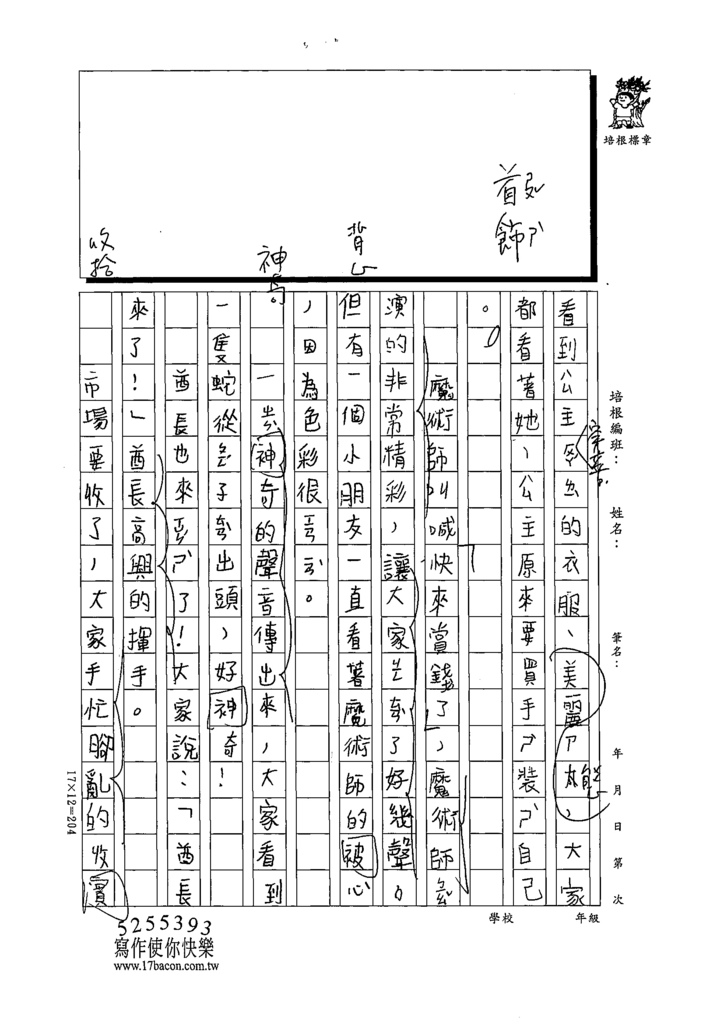 看到公主穿著的衣服、美麗ㄕ態，大家
都看著她，公主原來要買手ㄕ裝ㄕ自己
。
魔術師叫喊「快來賞錢了」，魔術師
演的非常精彩，讓大家ㄓ了好幾聲。
但有一個小朋友一直看著魔術師的被心
，因為色彩很
一神奇的聲音傳出來，大家看到
一隻蛇從子出頭，好神奇！
酋長也來ㄕ了！大家說：「酋長
來了！」酋長高興的揮手。
市場要收了，大家手忙腳亂的收濱
首
飾ㄕ
背心
神奇
收拾
穿著
培根標章
培根編班：
姓名：
筆名：
年 月 日 第 次
學校
年級
17×12=204
5255393
寫作使你快樂
www.17bacon.com.tw